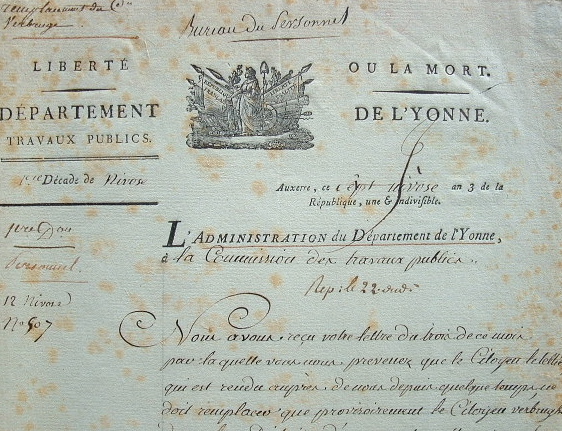 remplacement du Cen
Verbrugge.
Bureau du Personnel
LIBERTÉ
OU LA MORT.
DÉPARTEMENT
DE L'YONNE.
TRAVAUX PUBLICS.
1ere Décade de Nivose
Auxerre, ce sept nivose an 3 de la
République, une & indivisible.
L'ADMINISTRATION du Département de l'Yonne,
à la Commission des travaux publics.
Personnel
Rep. le 22 dudt
12 Nivose
No 507
Nous avons reçu votre lettre du trois de ce mois
par laquelle vous nous prevenez que le Citoyen
qui est rendu auprès de nous depuis quelque temps ne
doit remplacer que provisoirement le Citoyen